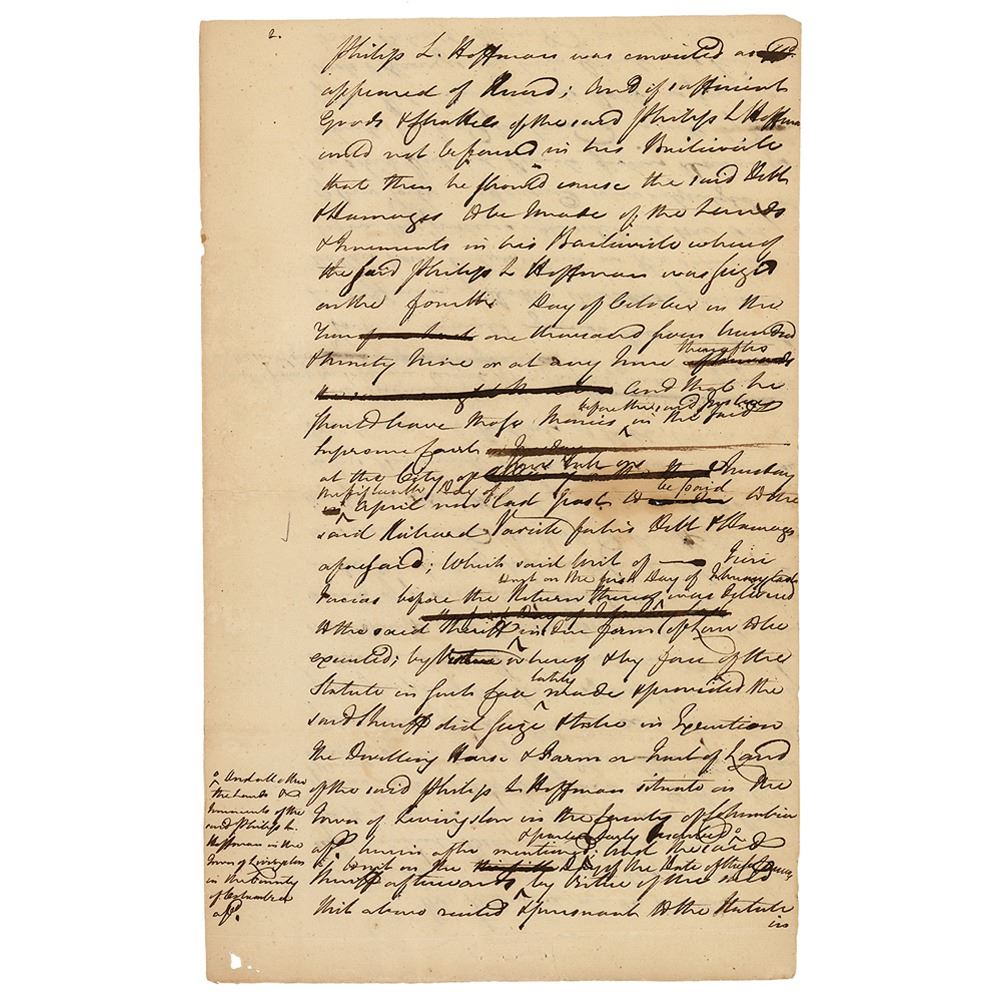 2.
Philip L. Hoffman was convicted as
appeared of Record; And if sufficient
Goods & Chattels of the said Philip L Hoffman
could not be found in his Bailiwick
that then he should cause the said Debt
& Damages to be made of the Lands
& Tenements in his Bailiwick whereof
the said Philip L Hoffman was seized
on the fourth Day of October in the
Year one thousand seven hundred
& ninety Nine or at any time thereafter
and that he
should have those Monies before the said Justices in the said
Supreme Court
at the City of New York on Tuesday
the fifteenth Day of April now last past to be paid to the
said Richard Varick for his Debt & Damages
aforesaid; Which said Writ of Fieri
Facias before the Return thereof was delivered
to the said Sheriff in due form of Law to be
executed; by whereof & by force of the
Statute in such case lately made & provided the
said Sheriff did seize & take in Execution
the Dwelling House & Farm or Tract of Land
of the said Philip L Hoffman situate in the
Town of Livingston in the County of Columbia
afsd. herein after mentioned & particularly described; And the said
Sheriff afterwards to wit on the Day of the Date of these by Virtue of the said
Writ above recited & pursuant to the Statute
in
And all other
the Lands &
Tenements of the
said Philip L.
Hoffman in the
Town of Livingston
in the County
of Columbia
afsd.